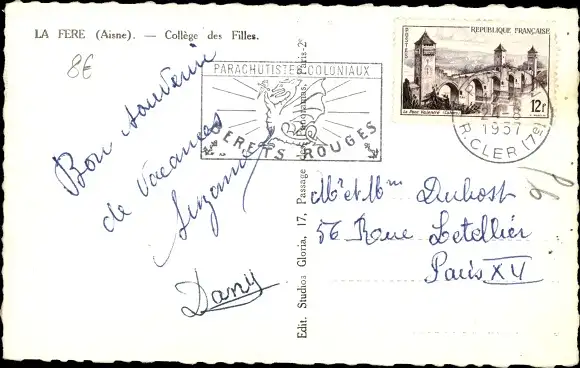 LA FERE (Aisne). — Collège des Filles.
8€
Bon souvenir
de vacances
Suzanne
Dany
PARACHUTISTES COLONIAUX
BERETS ROUGES
Edit. Studios Gloria, 17, Passage des Panoramas, Paris-2e
REPUBLIQUE FRANÇAISE
POSTES
12f
Le Pont Valentré (Cahors)
1957
R. CLER (7e)
Mr et Mme Duhost
56 Rue Letellier
Paris XV